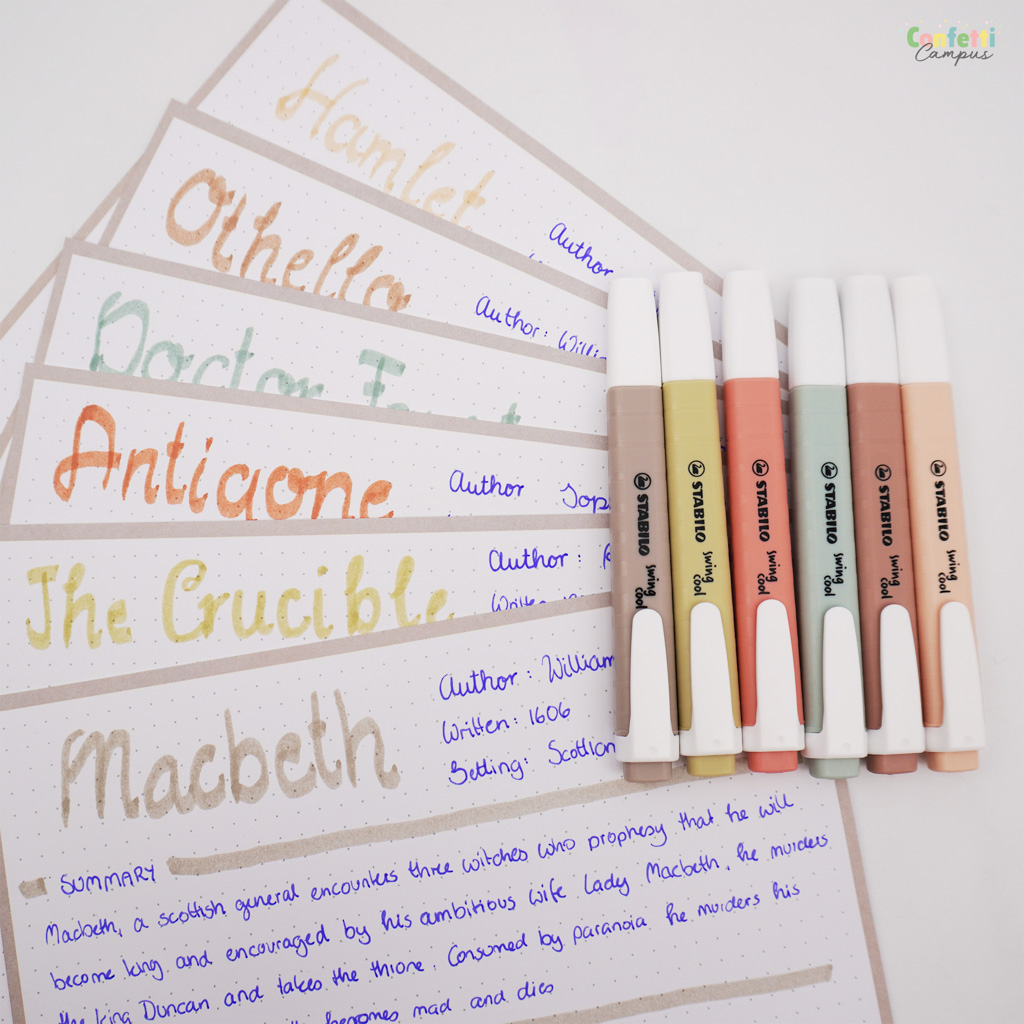 Confetti
Campus
Hamlet
Author
Othello
Author:
Doctor
Antigone
Author
The Crucible
Author:
Macbeth
Author: William
Written: 1606
Setting:
SUMMARY
Macbeth, a scottish general encounters three witches who prophesy that he will
become king and encouraged by his ambitious wife Lady Macbeth, he murders
the king Duncan and takes the throne. Consumed by paranoia he murders his
becomes mad and dies
STABILO
swing
cool
STABILO
swing
cool
STABILO
swing
cool
STABILO
swing
cool
STABILO
swing
cool
STABILO
swing
cool